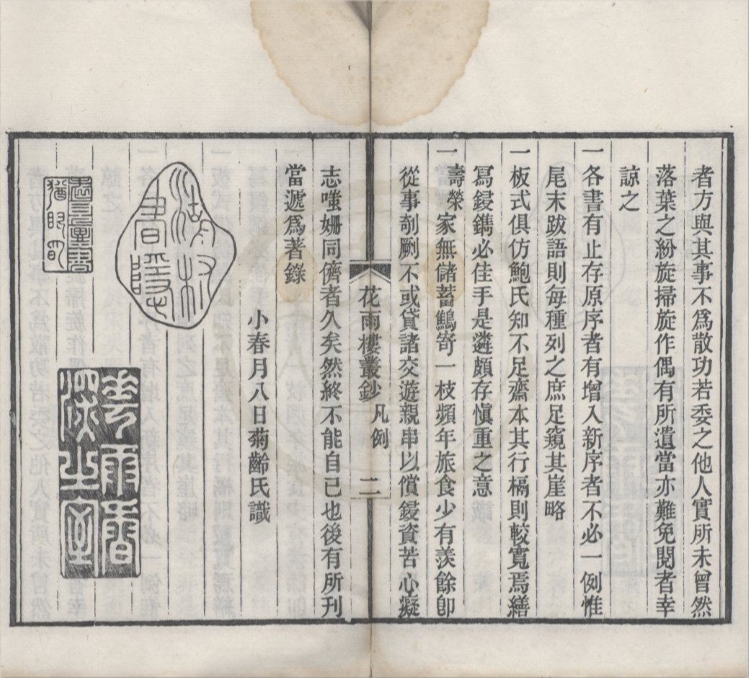 者方與其事不爲散功若委之他人實所未曾然
落葉之紛旋掃旋作偶有所遺當亦難免閱者幸
諒之
一各書有止存原序者有增入新序者不必一例惟
尾末跋語則每種列之庶足窺其崖略
一板式俱仿鮑氏知不足齋本其行槅則較寬焉繕
寫鋟鐫必佳手是遴頗存愼重之意
一壽榮家無儲蓄鷦寄一枝頻年旅食少有羨餘卽
從事剞劂不或貸諸交遊親串以償鋟資苦心癡
花雨樓叢鈔 凡例 二
志嗤姍同儕者久矣然終不能自已也後有所刊
當遞爲著錄
小春月八日菊齡氏識
書隱